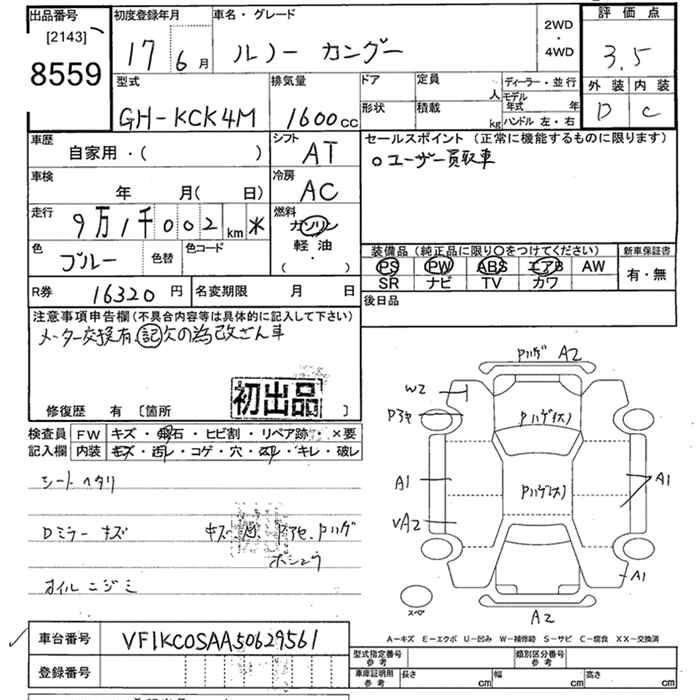 出品番号
[2143]
8559
初度登録年月
17 6 月
車名・グレード
ルノー カングー
2WD
・
4WD
評価点
3.5
外装 内装
D C
型式
GH-KCK4M
排気量
1600 cc
ドア
形状
定員
人
積載
kg
ディーラー・並行
モデル
年式 年
ハンドル 左・右
車歴
自家用・( )
シフト
AT
車検
年 月( 日)
冷房
AC
走行
9万1千002 km *
燃料
ガソリン
軽油
( ・ )
色
ブルー
色替
色コード
R券
16320 円
名変期限 月 日
セールスポイント (正常に機能するものに限ります)
○ユーザー買取車
装備品(純正品に限り○をつけてください)
PS PW ABS エアB AW
SR ナビ TV カワ
新車保証書
有・無
後日品
注意事項申告欄(不具合内容等は具体的に記入して下さい)
メーター交換有 記欠の為改ざん車
初出品
修復歴 有 [箇所 ]
検査員
記入欄
FW キズ・飛石・ヒビ割・リペア跡・×要
内装 キズ・汚レ・コゲ・穴・スリ・キレ・破レ
シートヘタリ
Dミラーキズ
オイルニジミ
PハゲA2
W2
Pハゲ(大)
A1
Pハゲ(大)
A1
VA2
A1
スペア
A2
A-キズ E-エクボ U-凹み W-補修跡 S-サビ C-腐食 XX-交換済
車台番号
VF1KC0SAA50629561
登録番号
型式指定番号
参考
類別区分番号
参考
車庫証明用
参考
長さ cm
幅 cm
高さ cm